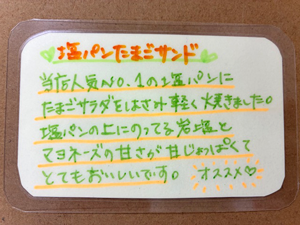 塩パンたまごサンド
当店人気No.1の塩パンに
たまごサラダをはさみ軽く焼きました。
塩パンの上にのってる岩塩と
マヨネーズの甘さが甘じょっぱくて
とてもおいしいです。 オススメ♡